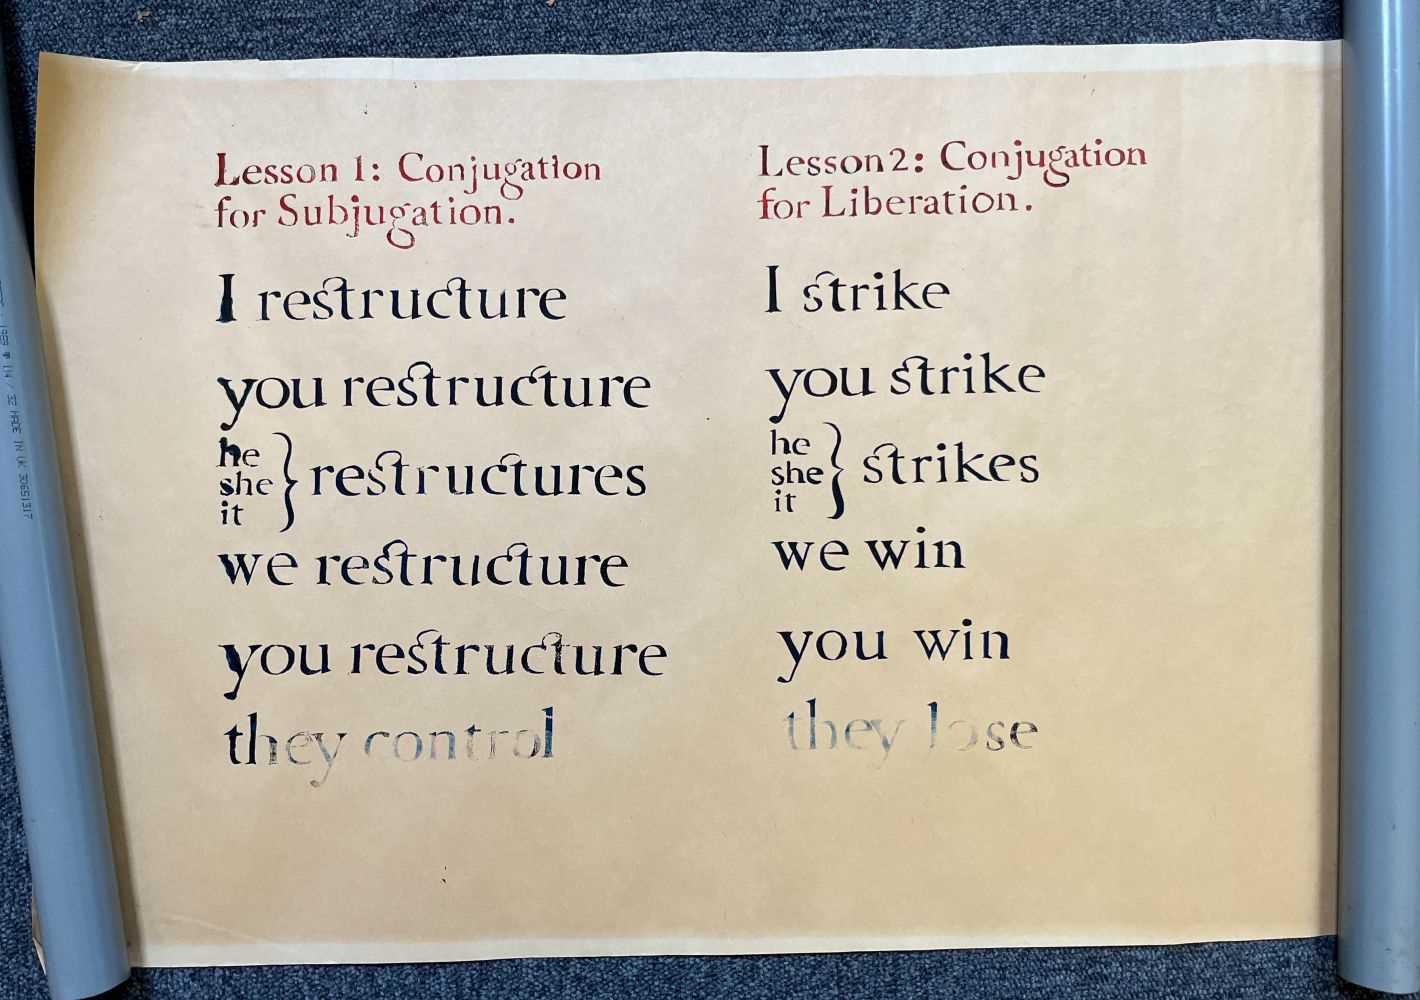 Lesson 1: Conjugation
for Subjugation.
I restructure
you restructure
he
she
it
} restructures
we restructure
you restructure
they control
Lesson 2: Conjugation
for Liberation.
I strike
you strike
he
she
it
} strikes
we win
you win
they lose